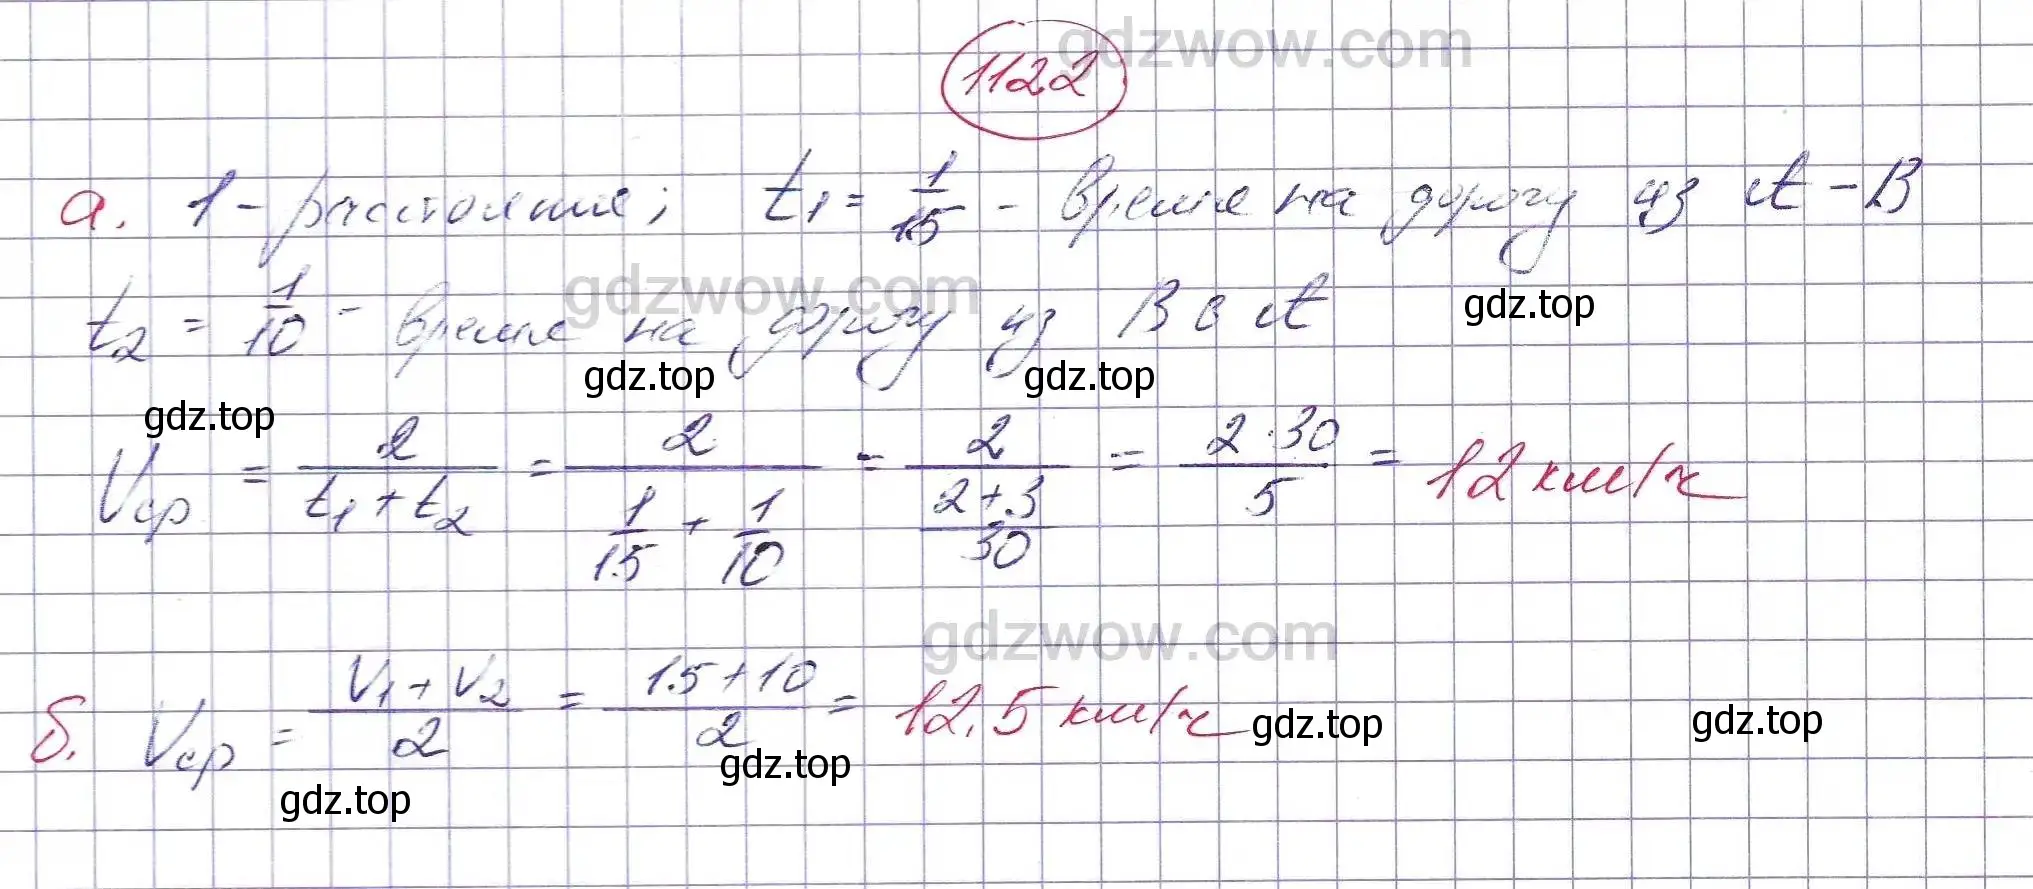 gdzwow.com
1122
а. 1 - расстояние; t₁ = 1/15 - время на дорогу из А - В
gdzwow.com
t₂ = 1/10 - время на дорогу из В в А
gdz.top
gdz.top gdz.top
gdz.top
Vср = 2/(t₁ + t₂) = 2/(1/15 + 1/10) = 2/((2+3)/30) = (2·30)/5 = 12 км/ч
gdzwow.com
б. Vср = (V₁ + V₂)/2 = (15+10)/2 = 12,5 км/ч
gdz.top gdz.top
gdz.top
gdz.top